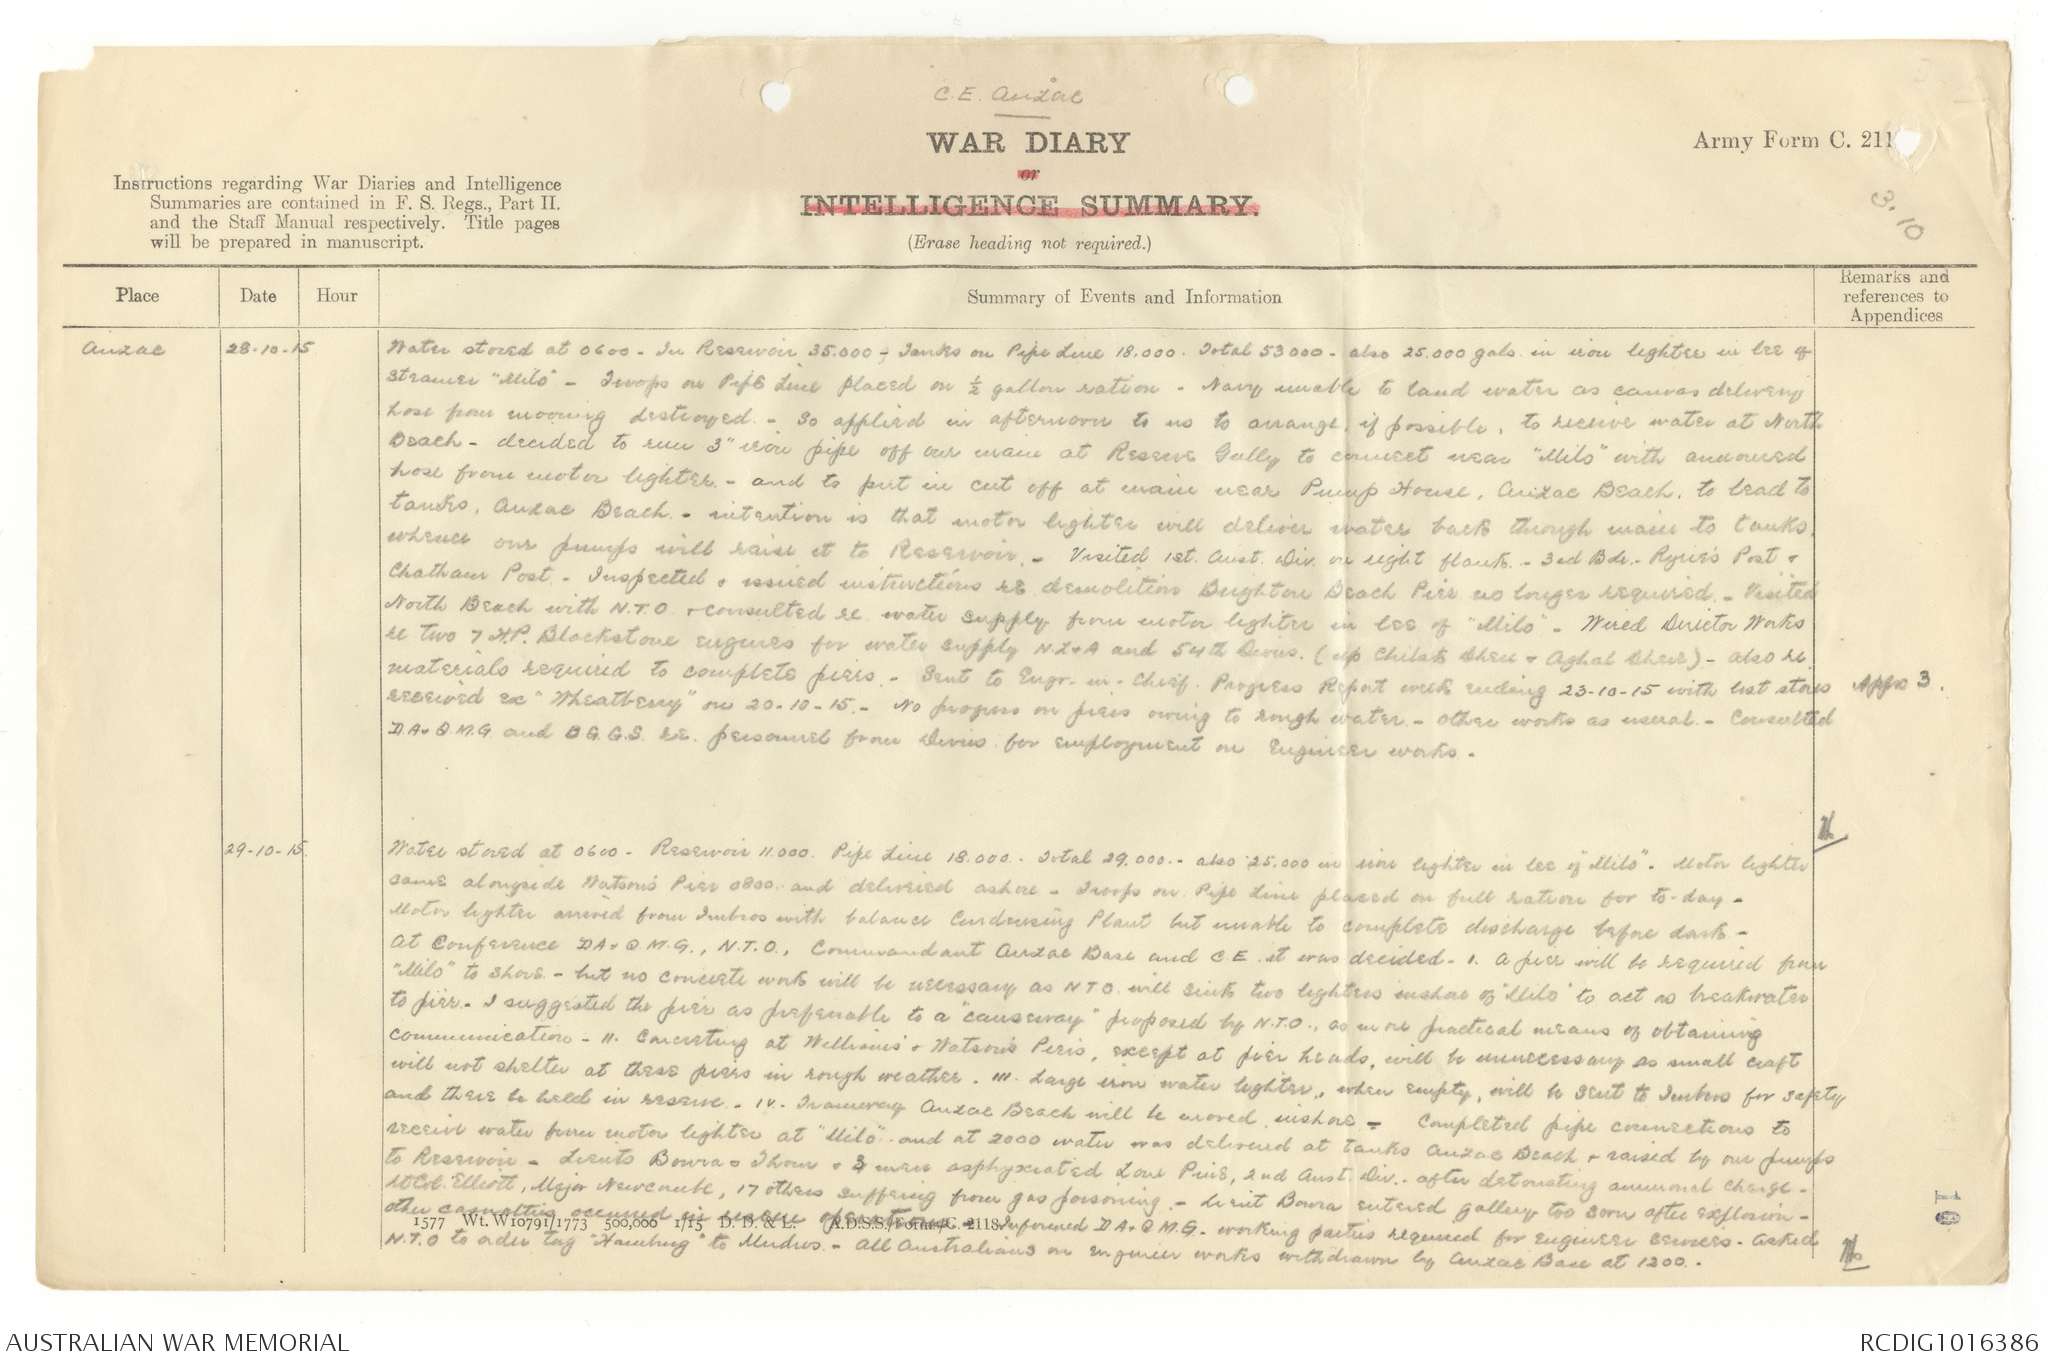 C.E. Anzac
WAR DIARY
or
INTELLIGENCE SUMMARY.
(Erase heading not required.)
Army Form C. 211
3.10
Instructions regarding War Diaries and Intelligence
Summaries are contained in F. S. Regs., Part II.
and the Staff Manual respectively. Title pages
will be prepared in manuscript.
Place Date Hour Summary of Events and Information Remarks and references to Appendices
Anzac 28-10-15 Water stored at 0600 - In Reservoir 35.000 - Tanks on Pipe Line 18.000. Total 53000 - also 25.000 gals. in iron lighter in lee of
Steamer "Milo" - Troops on Pipe Line placed on ½ gallon ration - Navy unable to land water as canvas delivery
hose from mooring destroyed. - So applied in afternoon to us to arrange, if possible, to receive water at North
Beach - decided to run 3" iron pipe off our main at Reserve Gully to connect near "Milo" with armoured
hose from motor lighter. - and to put in cut off at main near Pump House, Anzac Beach, to lead to
tanks, Anzac Beach. - intention is that motor lighter will deliver water back through main to tanks,
whence our pumps will raise it to Reservoir. - Visited 1st. Aust. Div. on right flank. - 3rd Bde. - Ryrie's Post +
Chatham Post. - Inspected + issued instructions re demolition Brighton Beach Pier no longer required. - Visited
North Beach with N.T.O. + consulted re. water supply from motor lighter in lee of "Milo" - Wired Director Works
re two 7 H.P. Blackstone engines for water supply N.Z+A and 54th Divns. (up Chilak Dere + Aghal Dere) - also re.
materials required to complete piers. - Sent to Engr-in-Chief. Progress Report week ending 23-10-15 with list stores Appx 3.
received ex "Wheatberry" on 20-10-15. - No progress on piers owing to rough water. - other works as usual. - Consulted
D.A+Q.M.G and B.G.G.S. re. personnel from Divns. for employment on Engineer works. -
29-10-15. Water stored at 0600 - Reservoir 11.000. Pipe Line 18.000. Total 29.000. - also 25.000 in iron lighter in lee of "Milo". Motor lighter
came alongside Watson's Pier 0800. and delivered ashore - Troops on Pipe Line placed on full ration for to-day -
Motor lighter arrived from Imbros with balance Condensing Plant but unable to complete discharge before dark -
At Conference DA+Q.M.G., N.T.O., Commandant Anzac Base and C.E. it was decided - I. A pier will be required from
"Milo" to shore - but no concrete work will be necessary as N.T.O. will sink two lighters inshore of "Milo" to act as breakwater
to pier. - I suggested the pier as preferrable to a "causeway" proposed by N.T.O., as more practical means of obtaining
communication - II. Concreting at Williams' + Watson's Piers, except at pier heads, will be unnecessary as small craft
will not shelter at these piers in rough weather. III. Large iron water lighter, when empty, will be sent to Imbros for safety
and there be held in reserve. - IV. Tramway Anzac Beach will be moved inshore - Completed pipe connections to
receive water from motor lighter at "Milo" and at 2000 water was delivered at tanks Anzac Beach + raised by our pumps
to Reservoir - Lieuts Bowra + Thom + 3 men asphyxiated Lone Pine, 2nd Aust. Div. - after detonating ammonal charge -
Lt Col. Elliott, Major Newcombe, 17 others suffering from gas poisoning. - Lieut Bowra entered gallery too soon after explosion -
other casualties occurred in rescue operations. - Informed DA+Q.M.G. working parties required for engineer services - Asked
N.T.O to order tug "Hamburg" to Mudros. - All Australians on engineer works withdrawn by Anzac Base at 1200. -
1577 Wt. W10791/1773 500,000 1/15 D. D. & L. A.D.S.S./Forms/C. 2118.
AUSTRALIAN WAR MEMORIAL
RCDIG1016386